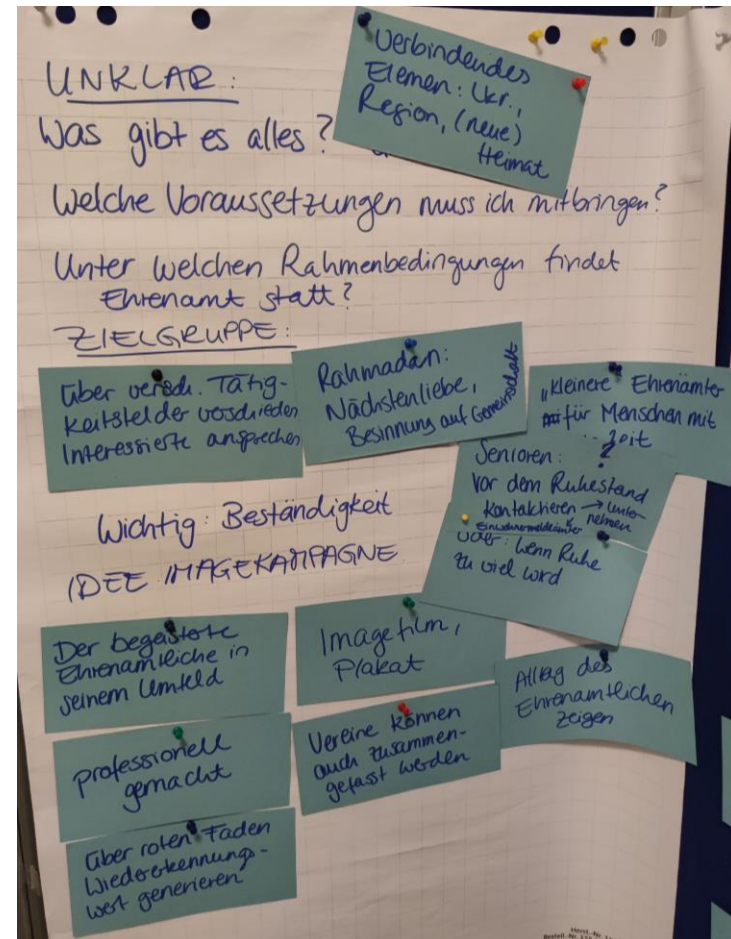 UNKLAR:
Was gibt es alles?
Verbindendes
Elemen: Lkr.,
Region, (neue)
Heimat
Welche Voraussetzungen muss ich mitbringen?
Unter welchen Rahmenbedingungen findet
Ehrenamt statt?
ZIELGRUPPE:
über versch. Tätig-
keitsfelder verschieden
Interessierte ansprechen
Rahmadan:
Nächstenliebe,
Besinnung auf Gemeinschaft
"kleinere" Ehrenämter
für Menschen mit
Zeit
Senioren:
vor dem Ruhestand
kontaktieren → Unter-
nehmen
Einwohnermeldeämter
oder: wenn Ruhe
zu viel wird
Wichtig: Beständigkeit
IDEE IMAGEKAMPAGNE
Der begeisterte
Ehrenamtliche in
seinem Umfeld
Imagefilm,
Plakat
Alltag des
Ehrenamtlichen
zeigen
professionell
gemacht
Vereine können
auch zusammen-
gefasst werden
über roten Faden
Wiedererkennungs-
wert generieren